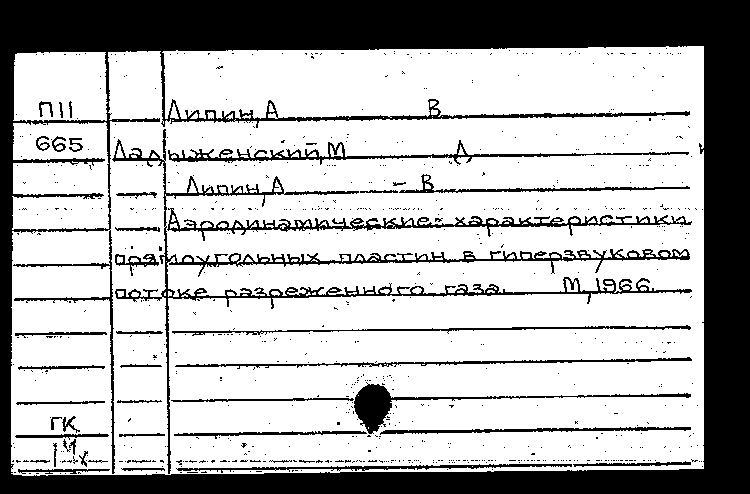 П11 Липин, А В
665 Ладыженский, М Д
Липин, А - В
Аэродинамические характеристики
прямоугольных пластин в гиперзвуковом
потоке разреженного газа. М, 1966.
ГК